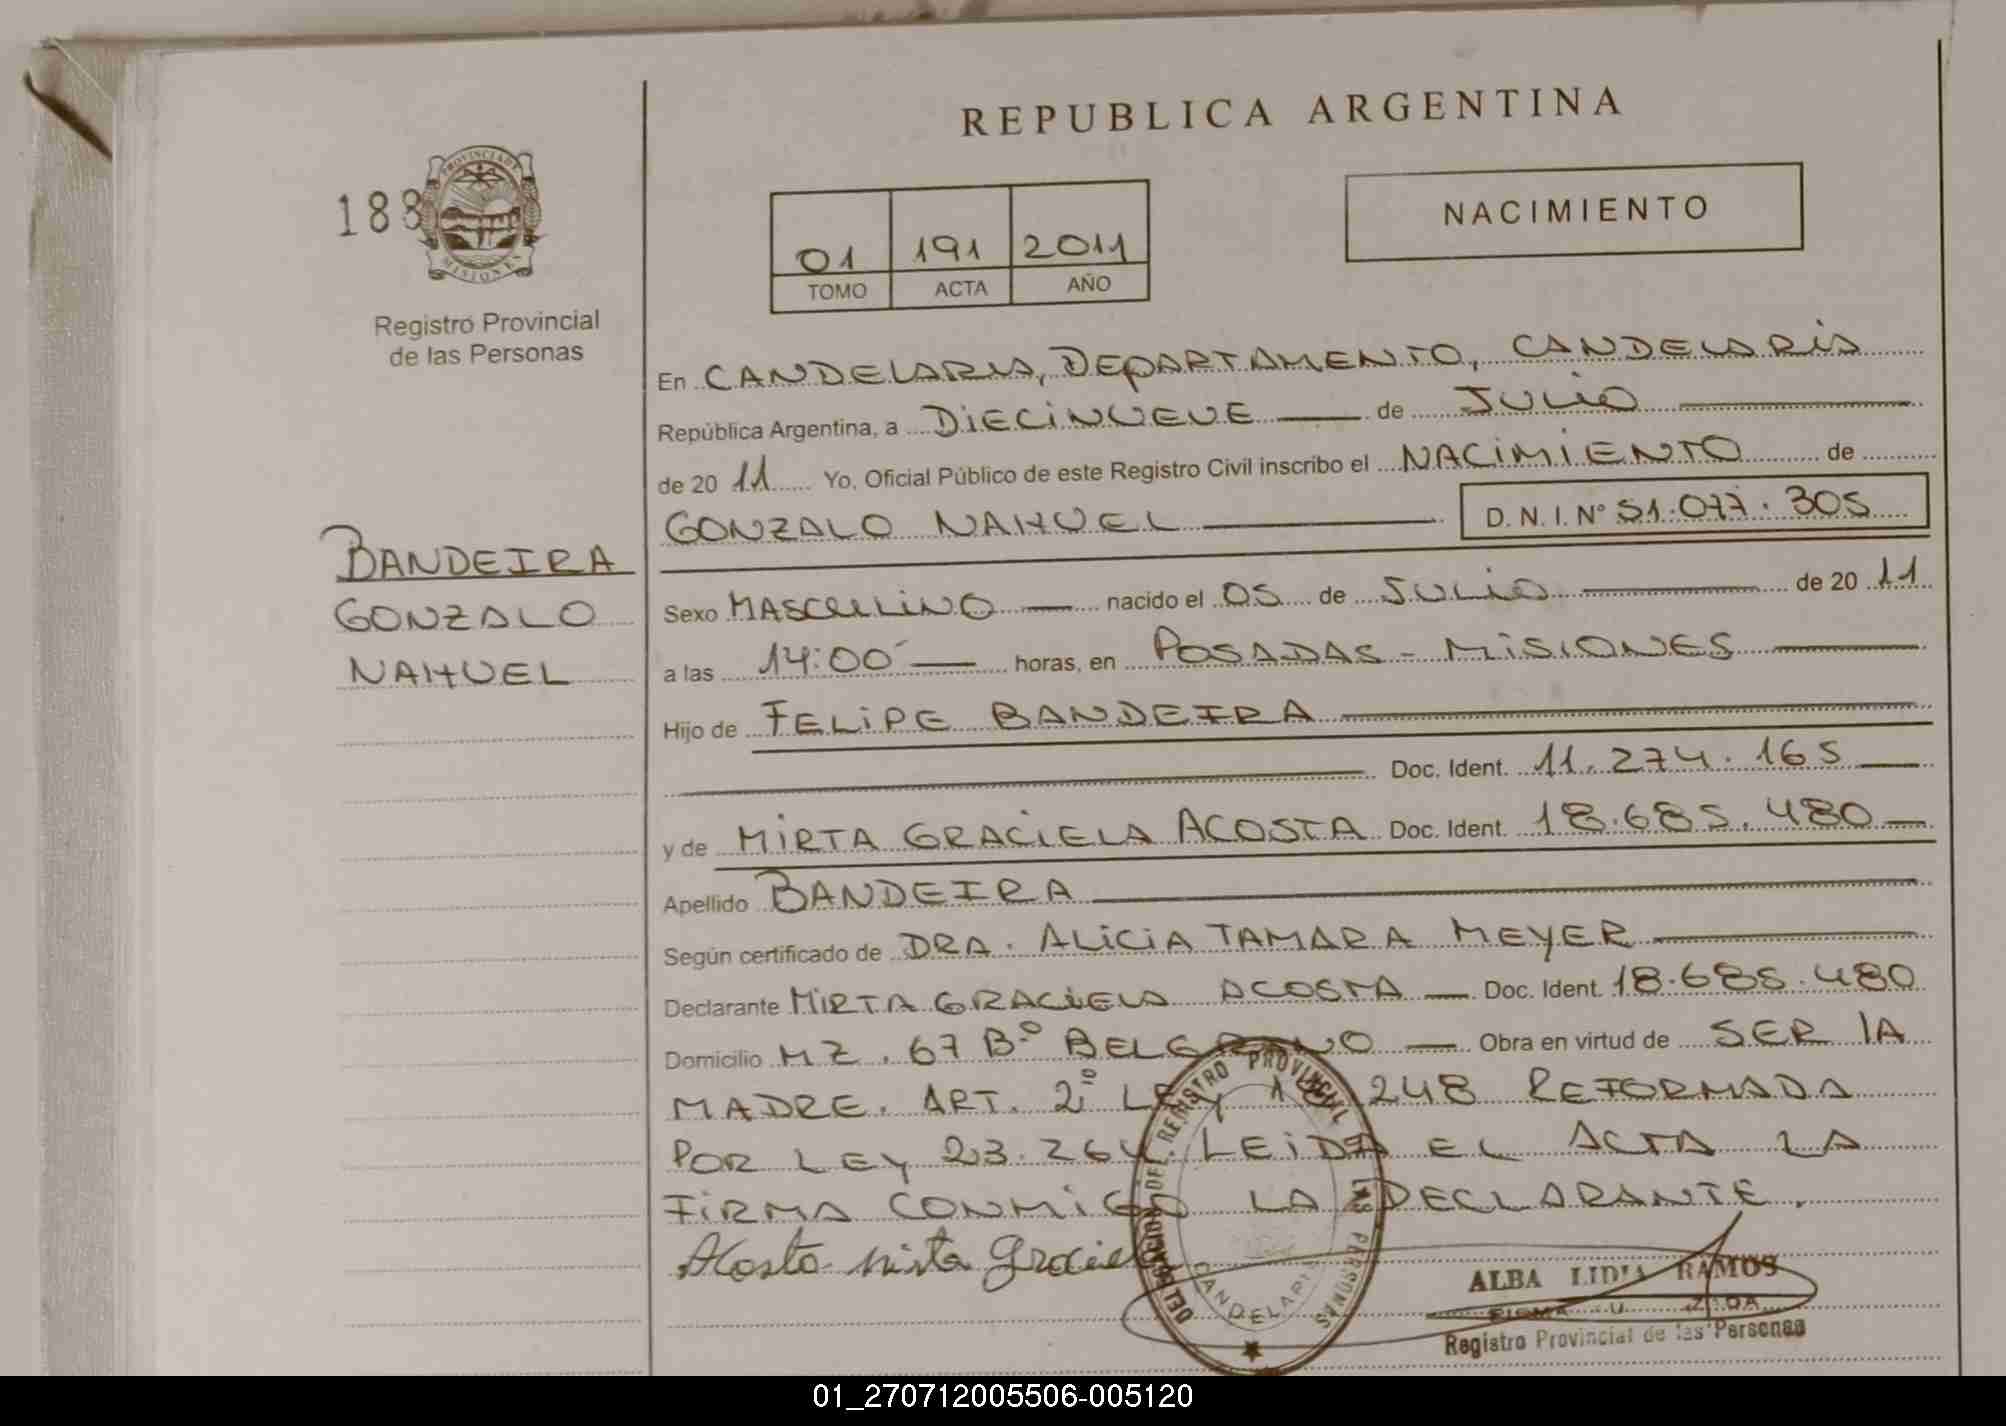 REPUBLICA ARGENTINA
188
PROVINCIA DE MISIONES
Registro Provincial
de las Personas
01 191 2011
TOMO ACTA AÑO
NACIMIENTO
En CANDELARIA, DEPARTAMENTO, CANDELARIA
República Argentina, a DIECINUEVE de JULIO
de 20 11 Yo, Oficial Público de este Registro Civil inscribo el NACIMIENTO de
GONZALO NAHUEL D. N. I. N° 51.077.305
BANDEIRA
GONZALO
NAHUEL
Sexo MASCULINO nacido el 05 de JULIO de 20 11
a las 14:00 horas, en POSADAS - MISIONES
Hijo de FELIPE BANDEIRA
Doc. Ident. 11.274.165
y de MIRTA GRACIELA ACOSTA Doc. Ident. 18.685.480
Apellido BANDEIRA
Según certificado de DRA. ALICIA TAMARA MEYER
Declarante MIRTA GRACIELA ACOSTA Doc. Ident. 18.685.480
Domicilio MZ. 67 B.º BELGRANO Obra en virtud de SER LA
MADRE. ART. 2º LEY 18.248 REFORMADA
POR LEY 23.264. LEIDA EL ACTA LA
FIRMA CONMIGO LA DECLARANTE.
Acosta mirta Graciela
DELEGACION DE REGISTRO PROVINCIAL LAS PERSONAS
CANDELARIA
ALBA LIDIA RAMOS
Registro Provincial de las Personas
01_270712005506-005120